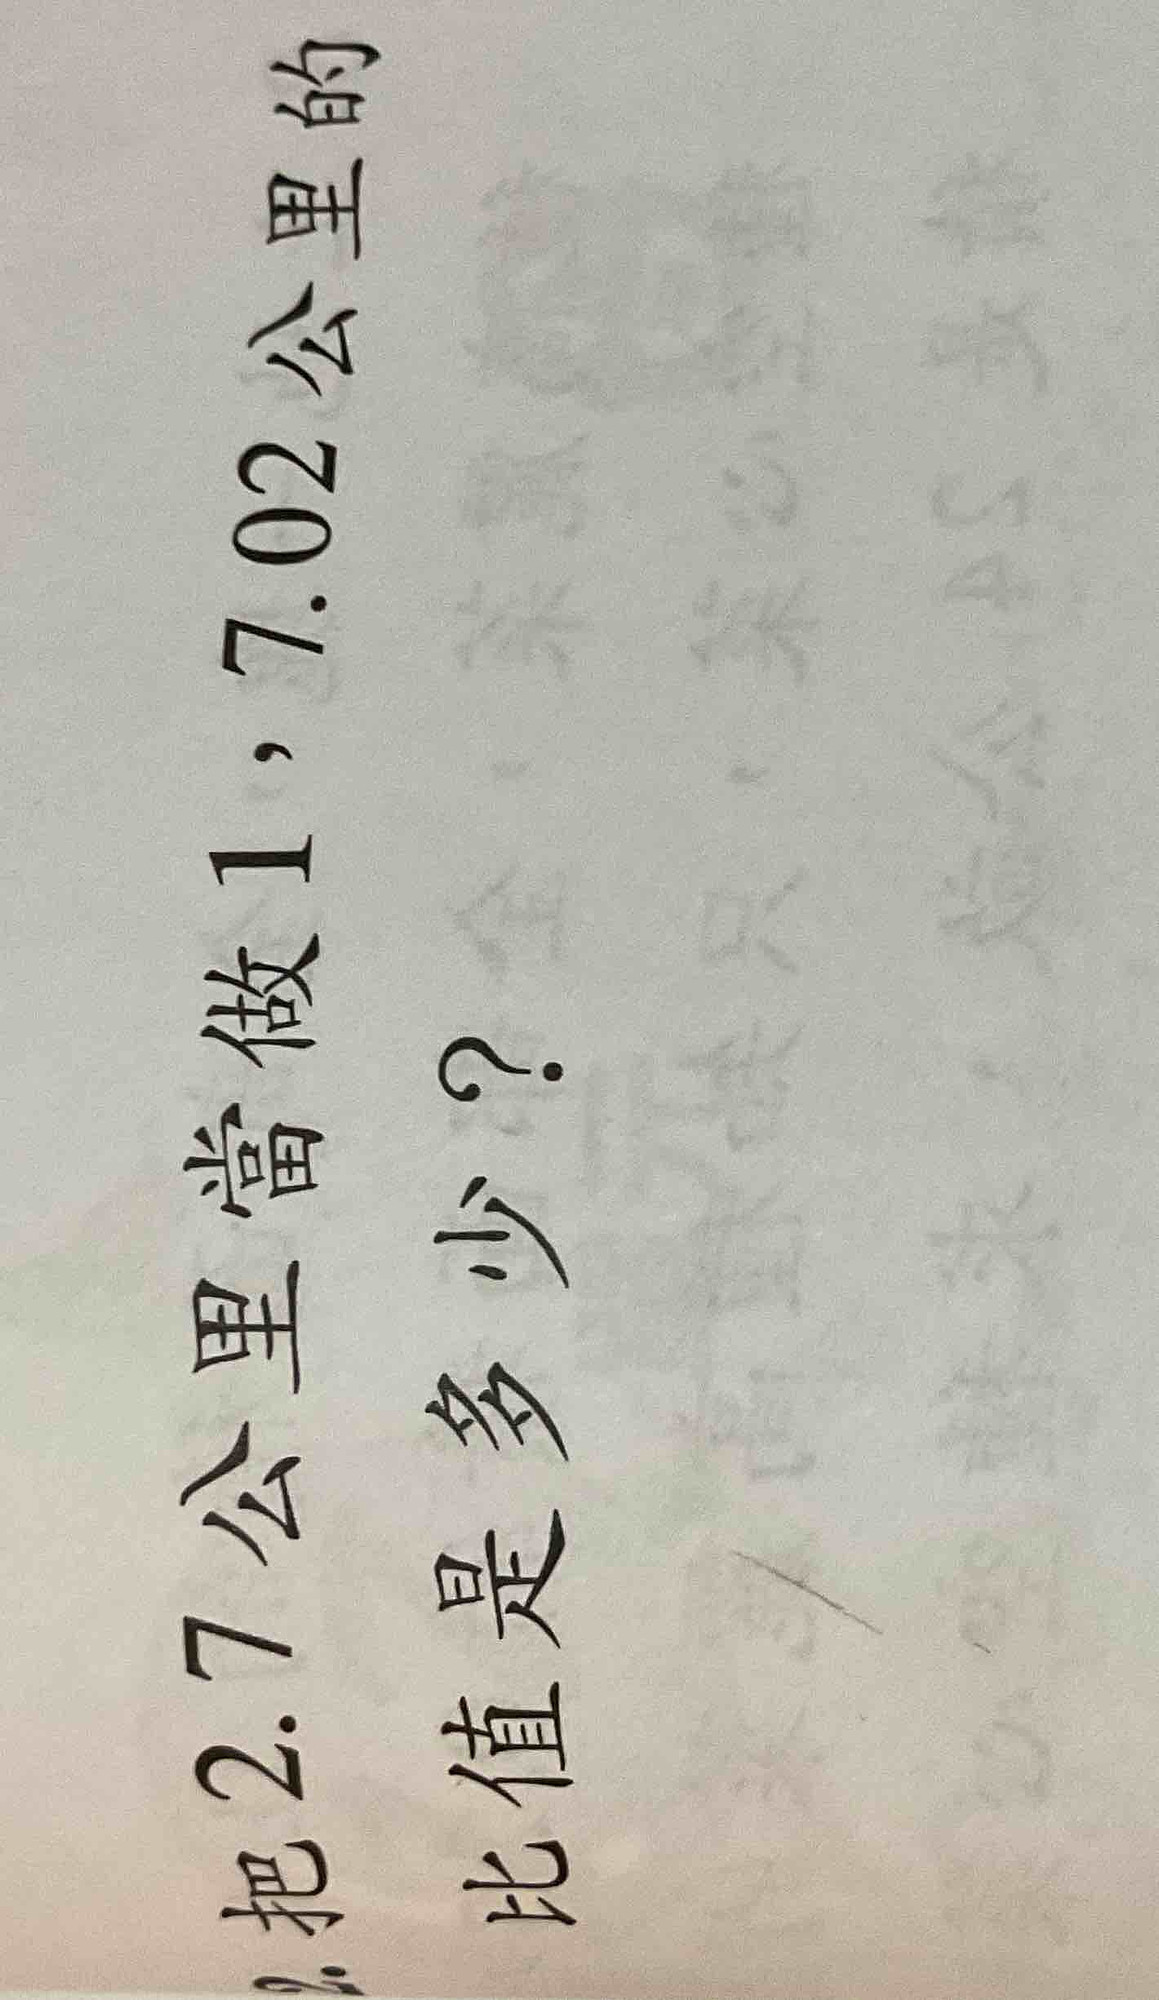 2.把2.7公里當做1，7.02公里的
比值是多少？